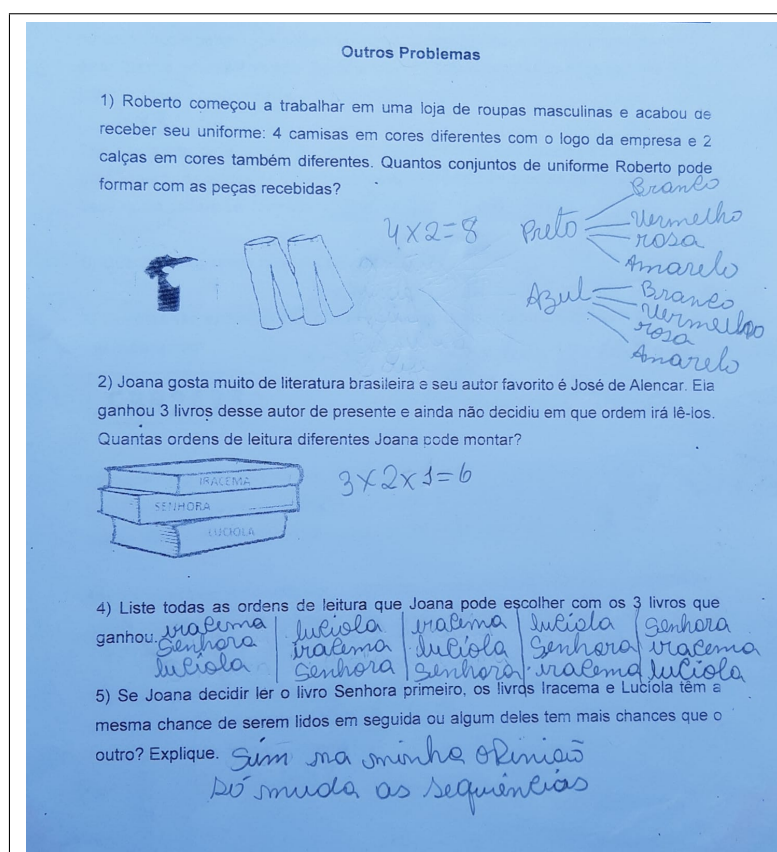 Outros Problemas
1) Roberto começou a trabalhar em uma loja de roupas masculinas e acabou de
receber seu uniforme: 4 camisas em cores diferentes com o logo da empresa e 2
calças em cores também diferentes. Quantos conjuntos de uniforme Roberto pode
formar com as peças recebidas?
4x2=8
Preto
Branco
Vermelho
rosa
Amarelo
Azul
Branco
Vermelho
rosa
Amarelo
2) Joana gosta muito de literatura brasileira e seu autor favorito é José de Alencar. Ela
ganhou 3 livros desse autor de presente e ainda não decidiu em que ordem irá lê-los.
Quantas ordens de leitura diferentes Joana pode montar?
IRACEMA
SENHORA
LUCIOLA
3x2x1=6
4) Liste todas as ordens de leitura que Joana pode escolher com os 3 livros que
ganhou. iracema | luciola | iracema | luciola | Senhora
Senhora | iracema | luciola | Senhora | iracema
luciola | Senhora | Senhora | iracema | luciola
5) Se Joana decidir ler o livro Senhora primeiro, os livros Iracema e Lucíola têm a
mesma chance de serem lidos em seguida ou algum deles tem mais chances que o
outro? Explique. Sim na minha opinião
só muda as sequências